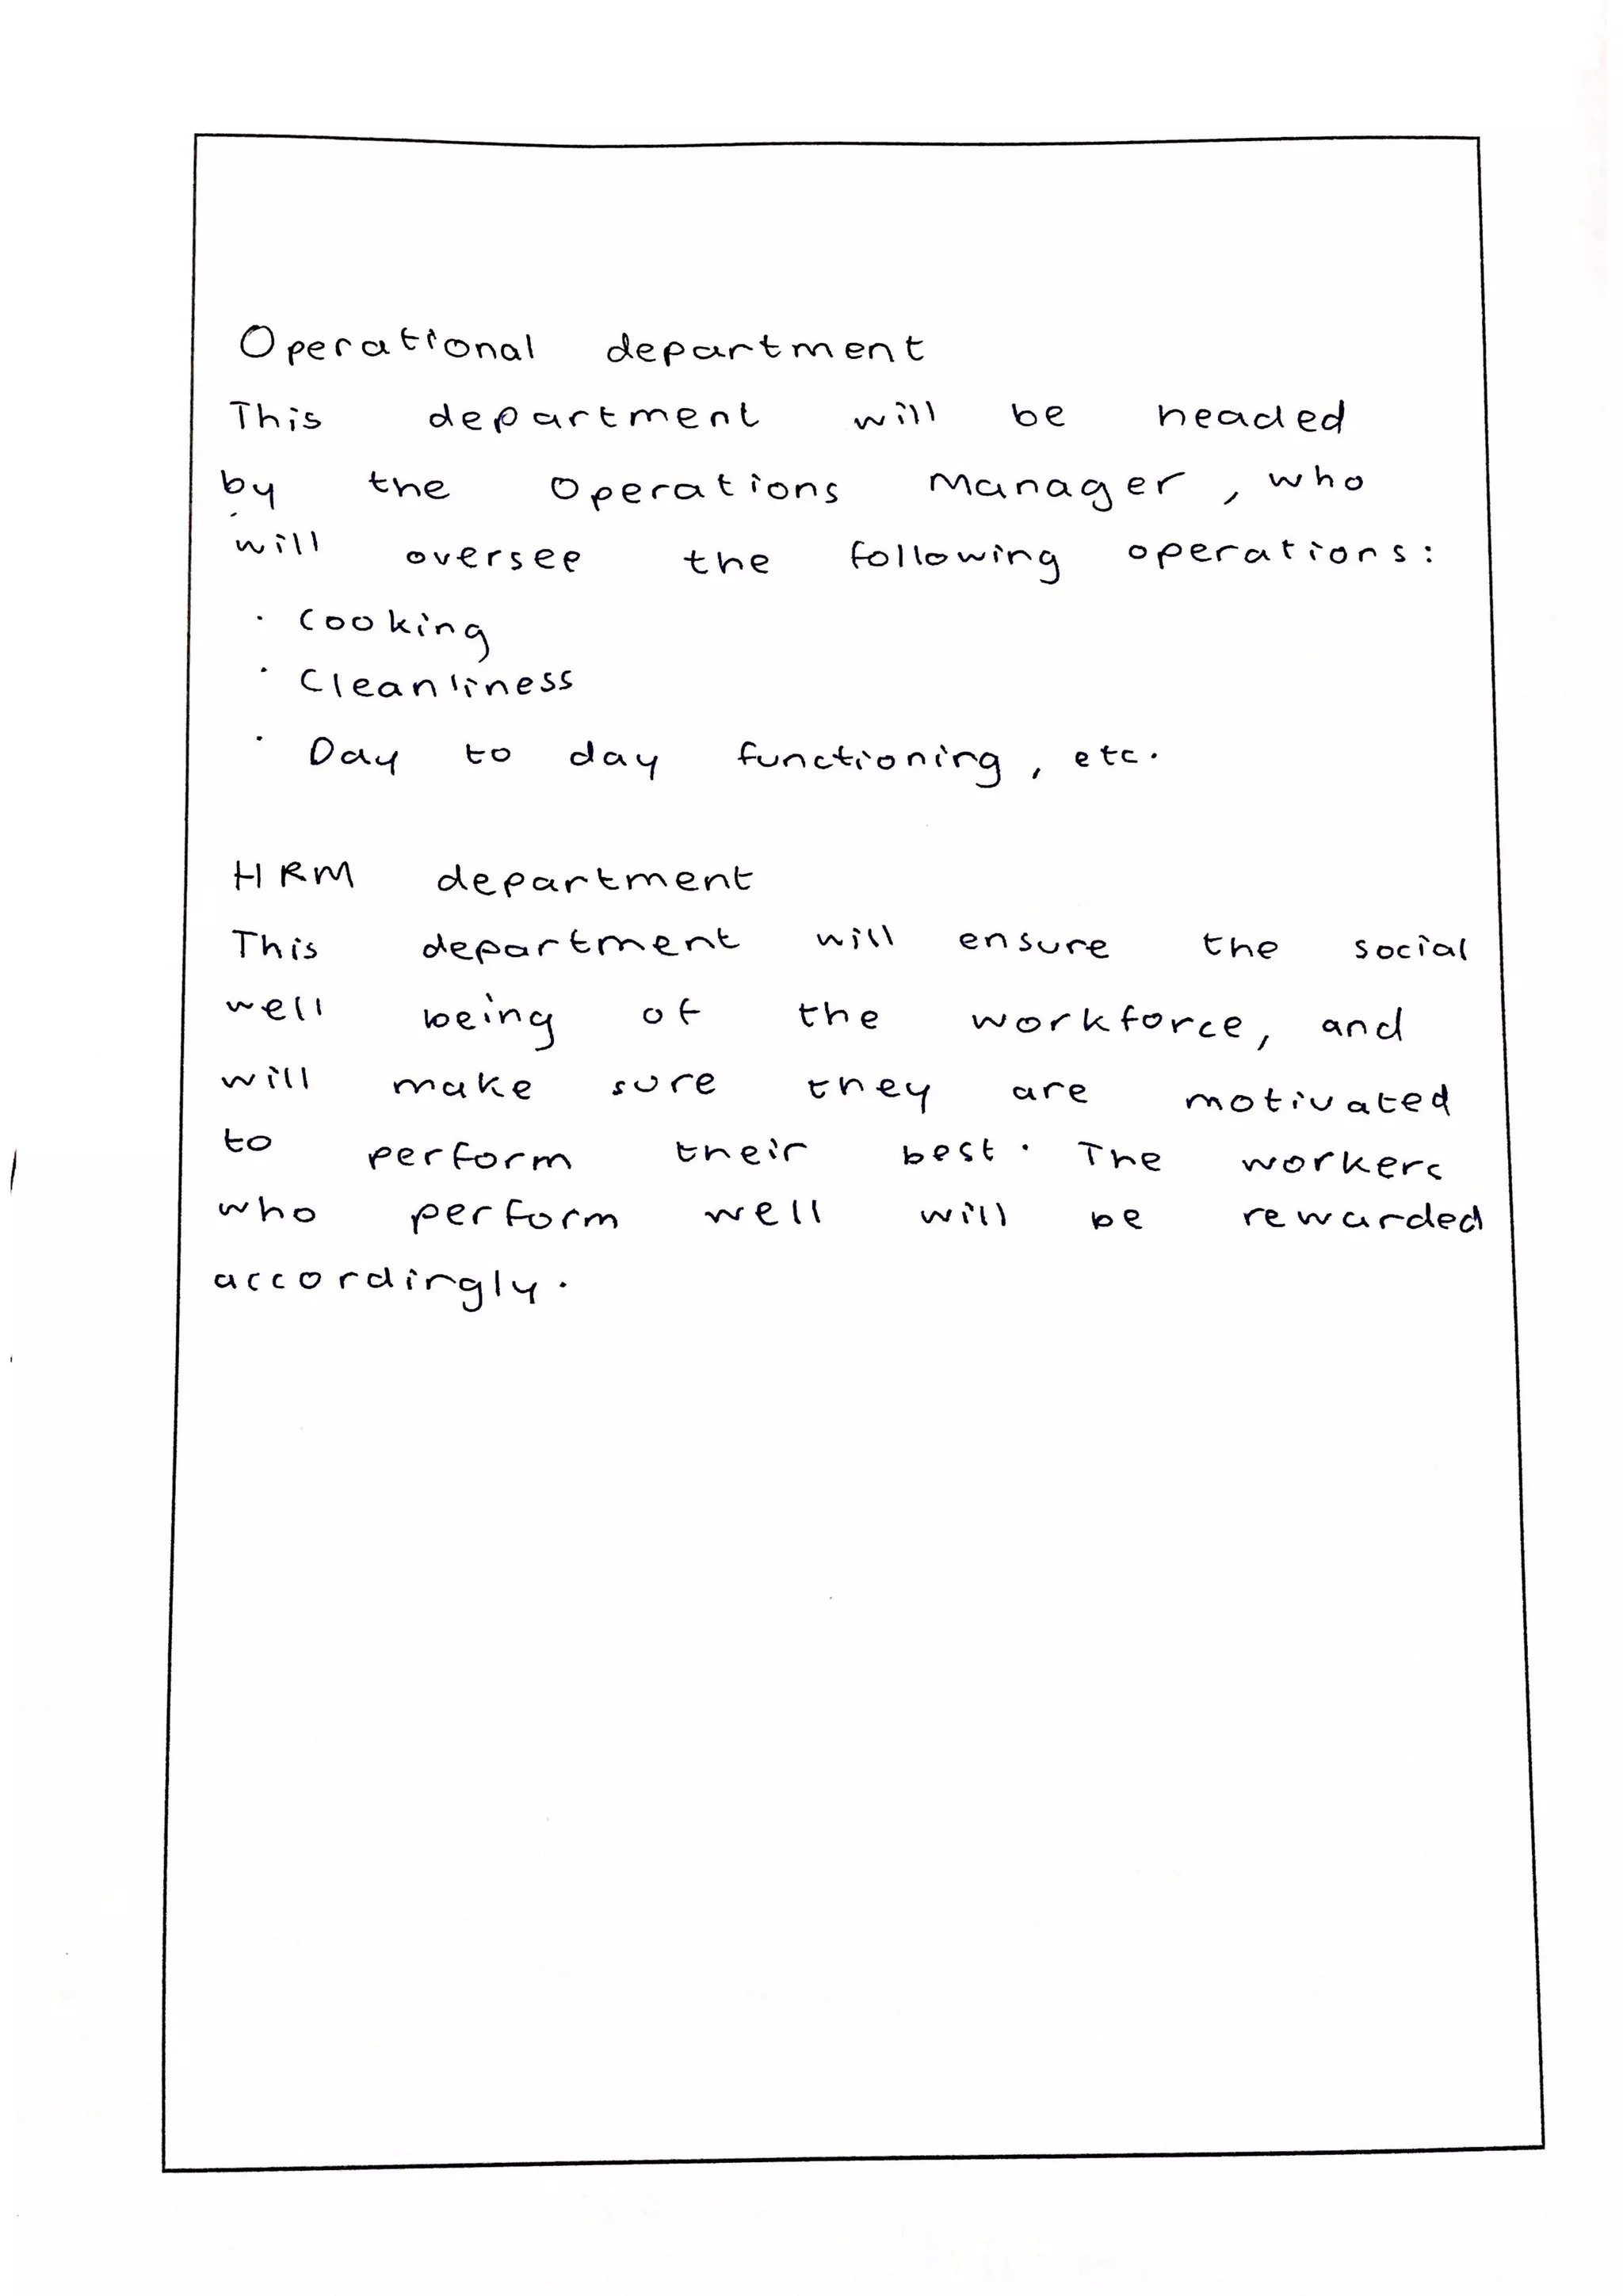 Operational department
This department will be headed
by the Operations Manager, who
will oversee the following operations:
· Cooking
· Cleanliness
· Day to day functioning, etc.
HRM department
This department will ensure the social
well being of the workforce, and
will make sure they are motivated
to perform their best. The workers
who perform well will be rewarded
accordingly.